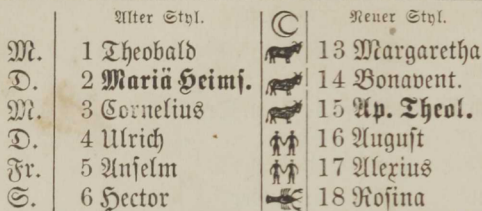 Alter Styl. Neuer Styl.
M. 1 Theobald 13 Margaretha
D. 2 Mariä Heims. 14 Bonavent.
M. 3 Cornelius 15 Ap. Theol.
D. 4 Ulrich 16 August
Fr. 5 Anselm 17 Alexius
S. 6 Hector 18 Rosina